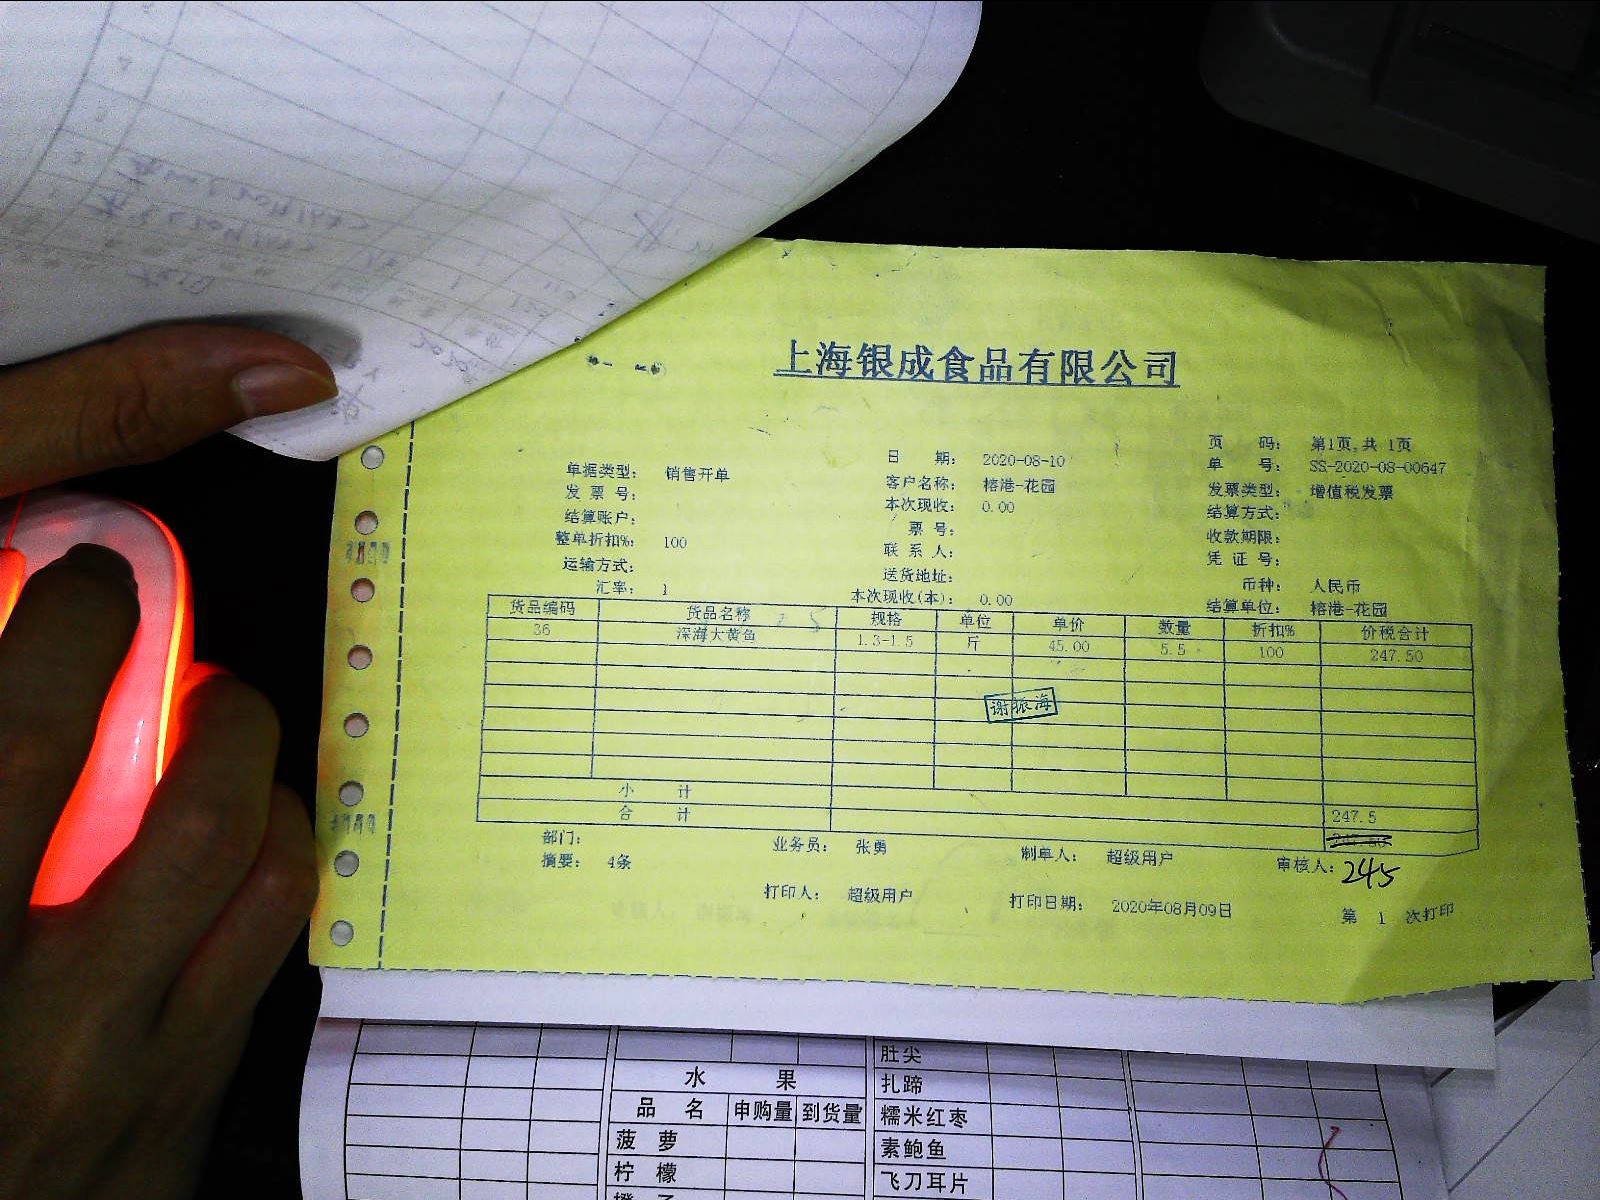 上海银成食品有限公司
单据类型： 销售开单 日 期： 2020-08-10 页 码： 第1页,共 1页
发 票 号： 客户名称： 榕港-花园 单 号： SS-2020-08-00647
结算账户： 本次现收： 0.00 发票类型： 增值税发票
整单折扣%： 100 票 号： 结算方式：
运输方式： 联 系 人： 收款期限：
汇率： 1 送货地址： 凭 证 号：
本次现收(本)： 0.00 币种： 人民币
结算单位： 榕港-花园
货品编码 货品名称 规格 单位 单价 数量 折扣% 价税合计
36 深海大黄鱼 1.3-1.5 斤 45.00 5.5 100 247.50
谢振海
小 计 247.5
合 计
245
部门： 业务员： 张勇 制单人： 超级用户 审核人：
摘要： 4条
打印人： 超级用户 打印日期： 2020年08月09日 第 1 次打印
水 果
品 名 申购量 到货量
菠 萝
柠 檬
肚尖
扎蹄
糯米红枣
素鲍鱼
飞刀耳片